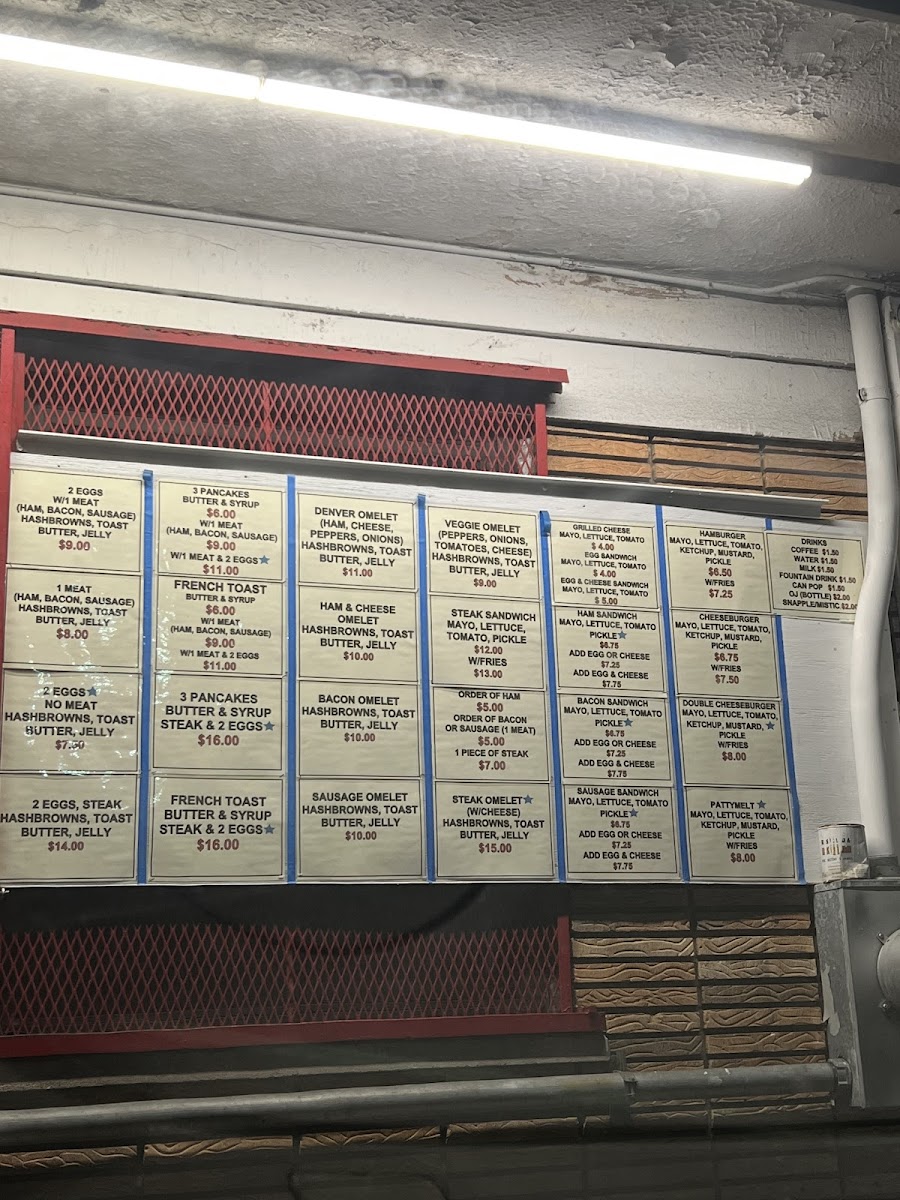 2 EGGS
W/1 MEAT
(HAM, BACON, SAUSAGE)
HASHBROWNS, TOAST
BUTTER, JELLY
$9.00
1 MEAT
(HAM, BACON, SAUSAGE)
HASHBROWNS, TOAST
BUTTER, JELLY
$8.00
2 EGGS★
NO MEAT
HASHBROWNS, TOAST
BUTTER, JELLY
$7.50
2 EGGS, STEAK
HASHBROWNS, TOAST
BUTTER, JELLY
$14.00
3 PANCAKES
BUTTER & SYRUP
$6.00
W/1 MEAT
(HAM, BACON, SAUSAGE)
$9.00
W/1 MEAT & 2 EGGS★
$11.00
FRENCH TOAST
BUTTER & SYRUP
$6.00
W/1 MEAT
(HAM, BACON, SAUSAGE)
$9.00
W/1 MEAT & 2 EGGS
$11.00
3 PANCAKES
BUTTER & SYRUP
STEAK & 2 EGGS★
$16.00
FRENCH TOAST
BUTTER & SYRUP
STEAK & 2 EGGS★
$16.00
DENVER OMELET
(HAM, CHEESE,
PEPPERS, ONIONS)
HASHBROWNS, TOAST
BUTTER, JELLY
$11.00
HAM & CHEESE
OMELET
HASHBROWNS, TOAST
BUTTER, JELLY
$10.00
BACON OMELET
HASHBROWNS, TOAST
BUTTER, JELLY
$10.00
SAUSAGE OMELET
HASHBROWNS, TOAST
BUTTER, JELLY
$10.00
VEGGIE OMELET
(PEPPERS, ONIONS,
TOMATOES, CHEESE)
HASHBROWNS, TOAST
BUTTER, JELLY
$9.00
STEAK SANDWICH
MAYO, LETTUCE,
TOMATO, PICKLE
$12.00
W/FRIES
$13.00
ORDER OF HAM
$5.00
ORDER OF BACON
OR SAUSAGE (1 MEAT)
$5.00
1 PIECE OF STEAK
$7.00
STEAK OMELET★
(W/CHEESE)
HASHBROWNS, TOAST
BUTTER, JELLY
$15.00
GRILLED CHEESE
MAYO, LETTUCE, TOMATO
$ 4.00
EGG SANDWICH
MAYO, LETTUCE, TOMATO
$ 4.00
EGG & CHEESE SANDWICH
MAYO, LETTUCE, TOMATO
$ 5.00
HAM SANDWICH
MAYO, LETTUCE, TOMATO
PICKLE★
$6.75
ADD EGG OR CHEESE
$7.25
ADD EGG & CHEESE
$7.75
BACON SANDWICH
MAYO, LETTUCE, TOMATO
PICKLE★
$6.75
ADD EGG OR CHEESE
$7.25
ADD EGG & CHEESE
$7.75
SAUSAGE SANDWICH
MAYO, LETTUCE, TOMATO
PICKLE★
$6.75
ADD EGG OR CHEESE
$7.25
ADD EGG & CHEESE
$7.75
HAMBURGER
MAYO, LETTUCE, TOMATO,
KETCHUP, MUSTARD,
PICKLE
$6.50
W/FRIES
$7.25
CHEESEBURGER
MAYO, LETTUCE, TOMATO,
KETCHUP, MUSTARD,
PICKLE
$6.75
W/FRIES
$7.50
DOUBLE CHEESEBURGER
MAYO, LETTUCE, TOMATO,
KETCHUP, MUSTARD, ★
PICKLE
W/FRIES
$8.00
PATTYMELT ★
MAYO, LETTUCE, TOMATO,
KETCHUP, MUSTARD,
PICKLE
W/FRIES
$8.00
DRINKS
COFFEE $1.50
WATER $1.50
MILK $1.50
FOUNTAIN DRINK $1.50
CAN POP $1.50
OJ (BOTTLE) $2.00
SNAPPLE/MISTIC $2.00